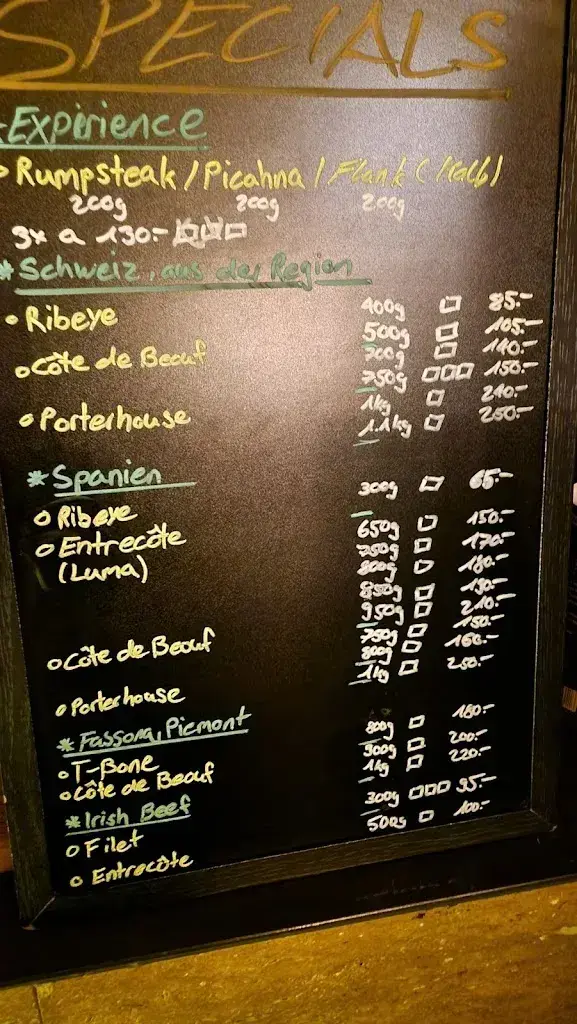 SPECIALS
Expirience
• Rumpsteak / Picahna / Flank (Kalb)
200g 200g 200g
3x a 130.- □□□
* Schweiz, aus der Region
• Ribeye 400g □ 85.-
500g □ 105.-
• Côte de Beouf 700g □ 140.-
750g □□□ 150.-
• Porterhouse 1kg □ 240.-
1.1kg □ 250.-
* Spanien
• Ribeye 300g □ 65.-
• Entrecôte 650g □ 150.-
(Luma) 750g □ 170.-
800g □ 180.-
850g □ 190.-
950g □ 210.-
• Côte de Beouf 750g □ 150.-
800g □ 160.-
• Porterhouse 1kg □ 250.-
* Fassona, Piemont
• T-Bone 800g □ 180.-
• Côte de Beouf 900g □ 200.-
1kg □ 220.-
* Irish Beef
• Filet 300g □□□ 95.-
• Entrecôte 500g □ 100.-